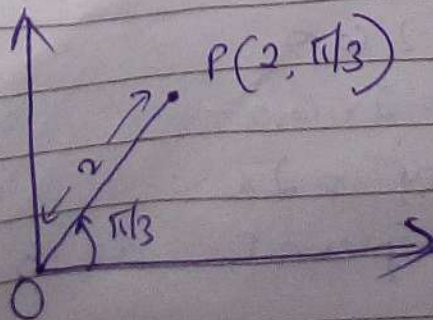 P(2, π/3)
2
π/3
O